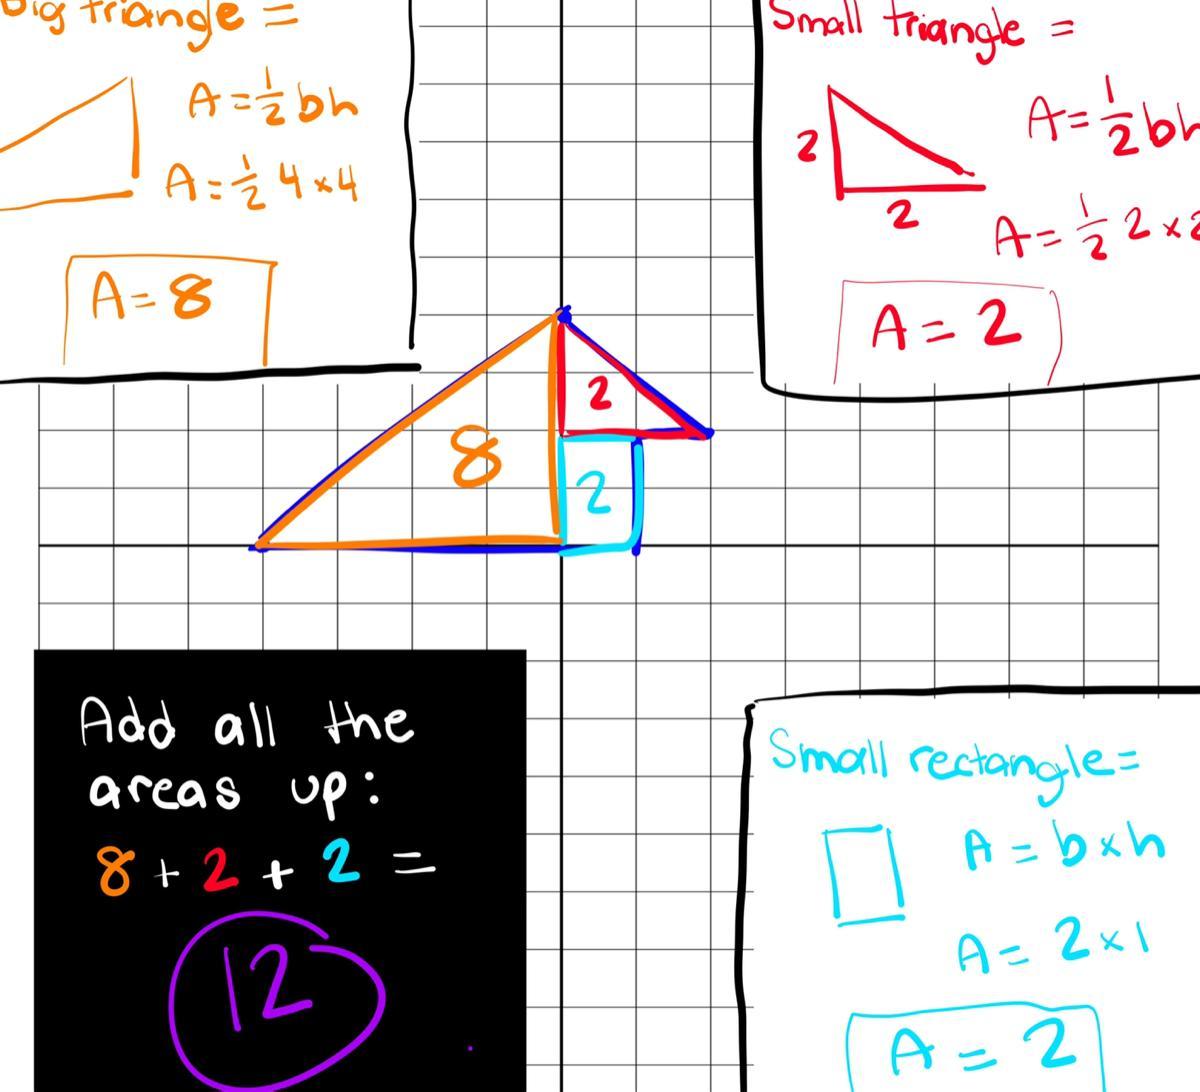 Big triangle =
A = 1/2 bh
A = 1/2 4 × 4
A = 8
Small triangle =
2
2
A = 1/2 bh
A = 1/2 2 × 2
A = 2
2
8
2
Add all the
areas up:
8 + 2 + 2 =
12
Small rectangle =
A = b × h
A = 2 × 1
A = 2